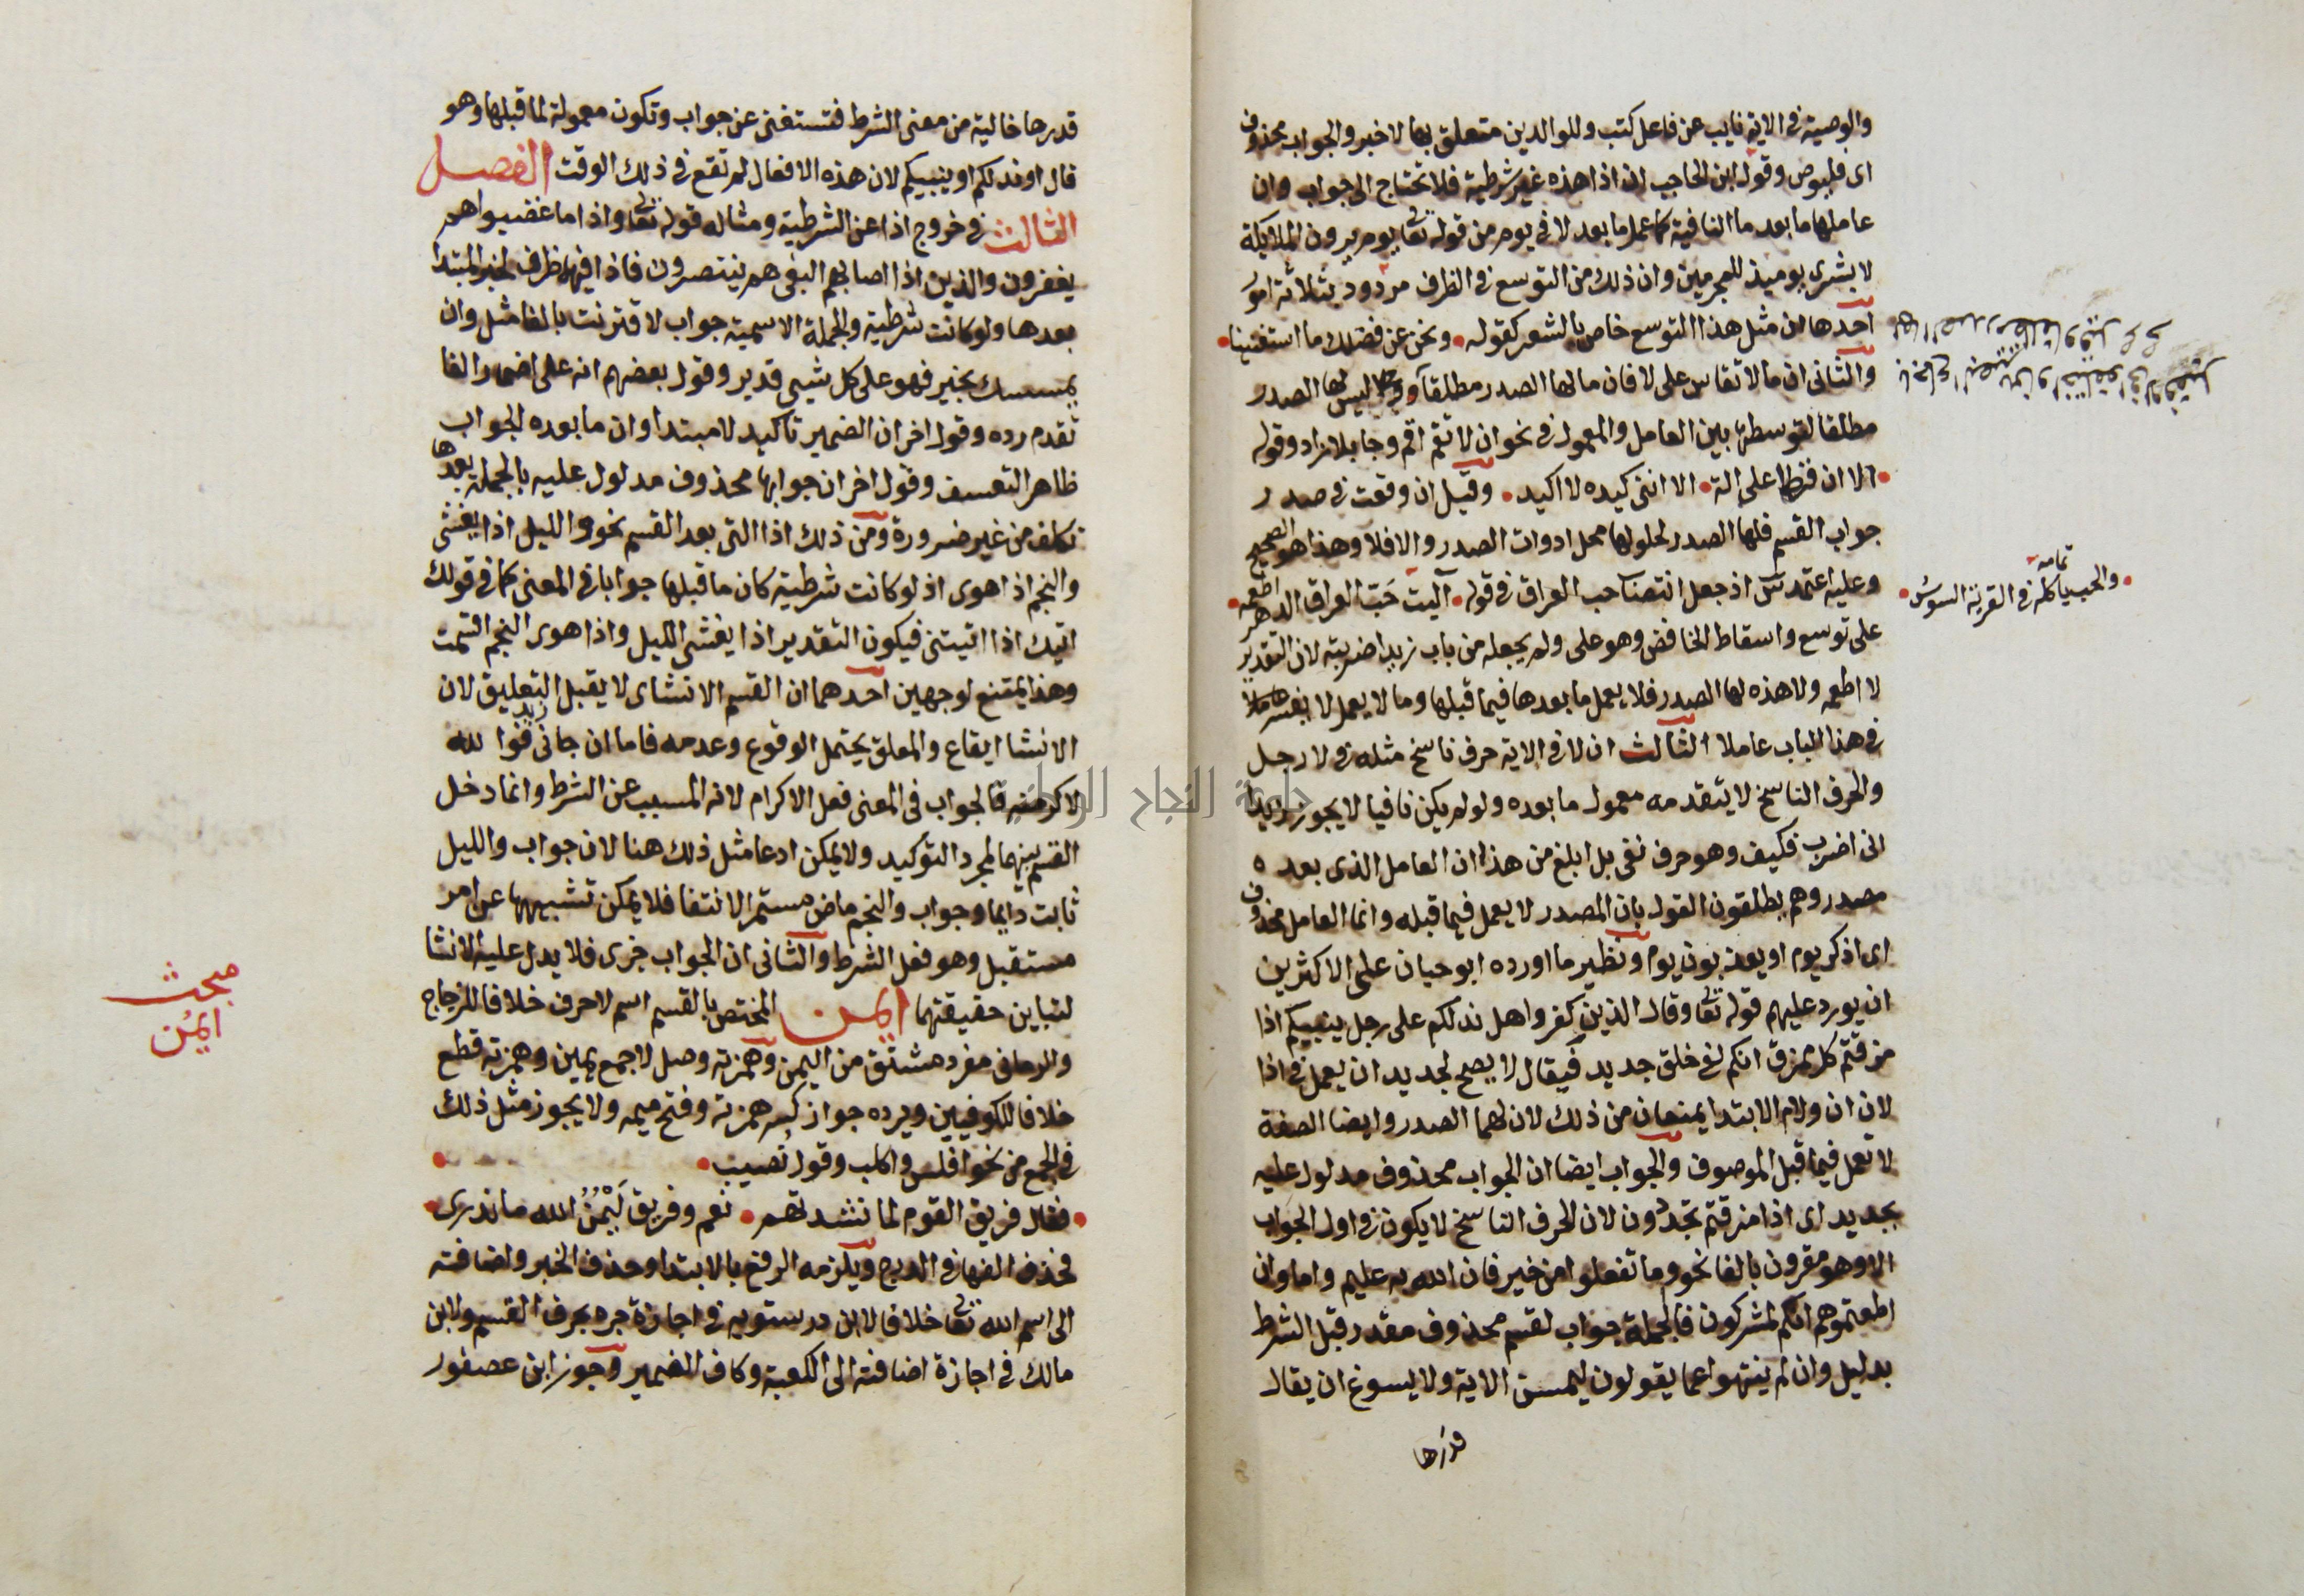 والوصية في الاية نايب عن فاعل كتب وللوالدين متعلق بها لا خبر والجواب محذوف
اى فليوص وقول ابن الحاجب ان اذا هذه غير شرطية فلا تحتاج الى جواب وان
عاملها ما بعد ما النافية كما عمل ما بعد لا في يوم من قوله تعا يوم يرون الملايكة
لا بشرى يوميذ للمجرمين وان ذلك من التوسع في الظرف مردود بثلاثة امور
احدها ان مثل هذا التوسع خاص بالشعر كقوله • ونحن عن فضلك ما استغنينا •
والثانى ان ما لا تقاس على لا فان ما لها الصدر مطلقا و ليس لها الصدر
مطلقا لتوسطها بين العامل والمعمول في نحو ان لا تقم اقم وجا بلا زاد وقوله
• الا ان قرطا على الة • الا اننى كيده لا اكيد • وقيل ان وقعت في صدر
جواب القسم فلها الصدر لحلولها محل ادوات الصدر والا فلا وهذا هو الصحيح
وعليه اعتمد س اذ جعل انتصاب حب العراق في قوله • آليت حَبّ العراق الدهر اطعمه •
على توسع واسقاط الخافض وهو على ولم يجعله من باب زيدا ضربته لان التقدير
لا اطعمه ولا هذه لها الصدر فلا يعمل ما بعدها فيما قبلها وما لا يعمل لا يفسر
في هذا الباب عاملا الثالث ان لا في الاية حرف ناسخ مثله في لا رجل
والحرف الناسخ لا يتقدمه معمول ما بعده ولو لم يكن نافيا لا يجوز زيدا
انى اضرب فكيف وهو حرف نفى بل ابلغ من هذا ان العامل الذى بعده
مصدر وهم يطلقون القول بان المصدر لا يعمل فيما قبله وانما العامل محذوف
اى اذكر يوم او يعذبون يوم ونظير ما اورده ابو حيان على الاكثرين
ان يورد عليهم قوله تعا وقال الذين كفروا هل ندلكم على رجل ينبيكم اذا
مزقتم كل ممزق انكم لفى خلق جديد فيقال لا يصح لجديد ان يعمل في اذا
لان ان ولام الابتدا يمنعان من ذلك لان لهما الصدر وايضا الصفة
لا تعمل فيما قبل الموصوف والجواب ايضا ان الجواب محذوف مدلول عليه
بجديد اى اذا مزقتم تجددون لان الحرف الناسخ لا يكون في اول الجواب
الا وهو مقرون بالفا نحو وما تفعلوا من خير فان الله به عليم واما وان
اطعتموهم انكم لمشركون فالجملة جواب لقسم محذوف مقدر قبل الشرط
بدليل وان لم ينتهوا عما يقولون ليمسن الاية ولا يسوغ ان يقال
قدرها
تمامه
• والحب ياكله في القرية السوس •
قدرها خالية من معنى الشرط فتستغنى عن جواب وتكون معمولة لما قبلها وهو
قال او ندلكم او ينبيكم لان هذه الافعال لم تقع في ذلك الوقت الفصل
الثالث في خروج اذا عن الشرطية ومثاله قوله تعا واذا ما غضبوا هم
يغفرون والذين اذا اصابهم البغى هم ينتصرون فاذا فيهما ظرف لخبر المبتدا
بعدها ولو كانت شرطية والجملة الاسمية جواب لاقترنت بالفا مثل وان
يمسسك بخير فهو على كل شيى قدير وقول بعضهم انه على اضمار الفا
تقدم رده وقول اخر ان الضمير تاكيد لا مبتدا وان ما بعده الجواب
ظاهر التعسف وقول اخر ان جوابها محذوف مدلول عليه بالجملة بعدها
تكلف من غير ضرورة ومن ذلك اذا التى بعد القسم نحو والليل اذا يغشى
والنجم اذا هوى اذ لو كانت شرطية كان ما قبلها جوابا في المعنى كما في قولك
اتيك اذا اتيتنى فيكون التقدير اذا يغشى الليل واذا هوى النجم اقسمت
وهذا يمتنع لوجهين احدهما ان القسم الانشاى لا يقبل التعليق لان
الانشا ايقاع والمعلق يحتمل الوقوع وعدمه فاما ان جانى زيد فوالله
لاكرمنه فالجواب في المعنى فعل الاكرام لانه المسبب عن الشرط وانما دخل
القسم بينهما لمجرد التوكيد ولا يمكن ادعا مثل ذلك هنا لان جواب والليل
ثابت دايما وجواب والنجم ماض مستمر الانتفا فلا يمكن تشبيهها عن امر
مستقبل وهو فعل الشرط والثانى ان الجواب خبرى فلا يدل عليه الانشا
لتباين حقيقتهما ايمن المختص بالقسم اسم لا حرف خلافا للزجاج
والرمانى مفرد مشتق من اليمن وهمزته وصل لا جمع يمين وهمزته قطع
خلافا للكوفيين ويرده جواز كسر همزته وفتح ميمه ولا يجوز مثل ذلك
في الجمع من نحو افلس واكلب وقول نُصيب •
• فقال فريق القوم لما نشدتهم • نعم وفريق لَيْمُنُ الله ما ندرى •
فحذف الفها في الدرج ويلزمه الرفع بالابتدا وحذف الخبر واضافته
الى اسم الله تعا خلافا لابن درستويه في اجازة جره بحرف القسم ولابن
مالك في اجازة اضافته الى الكعبة وكاف الضمير وجوز ابن عصفور
مبحث
ايمُن
جامعة النجاح الوطنية